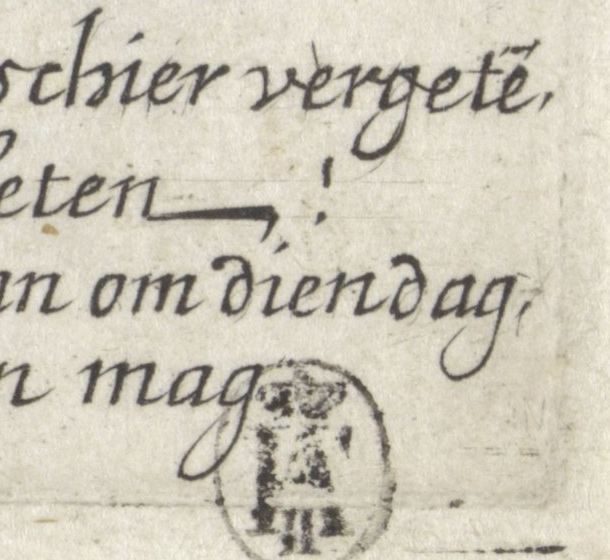 schier vergetē,
eten
an om dien dag,
n mag